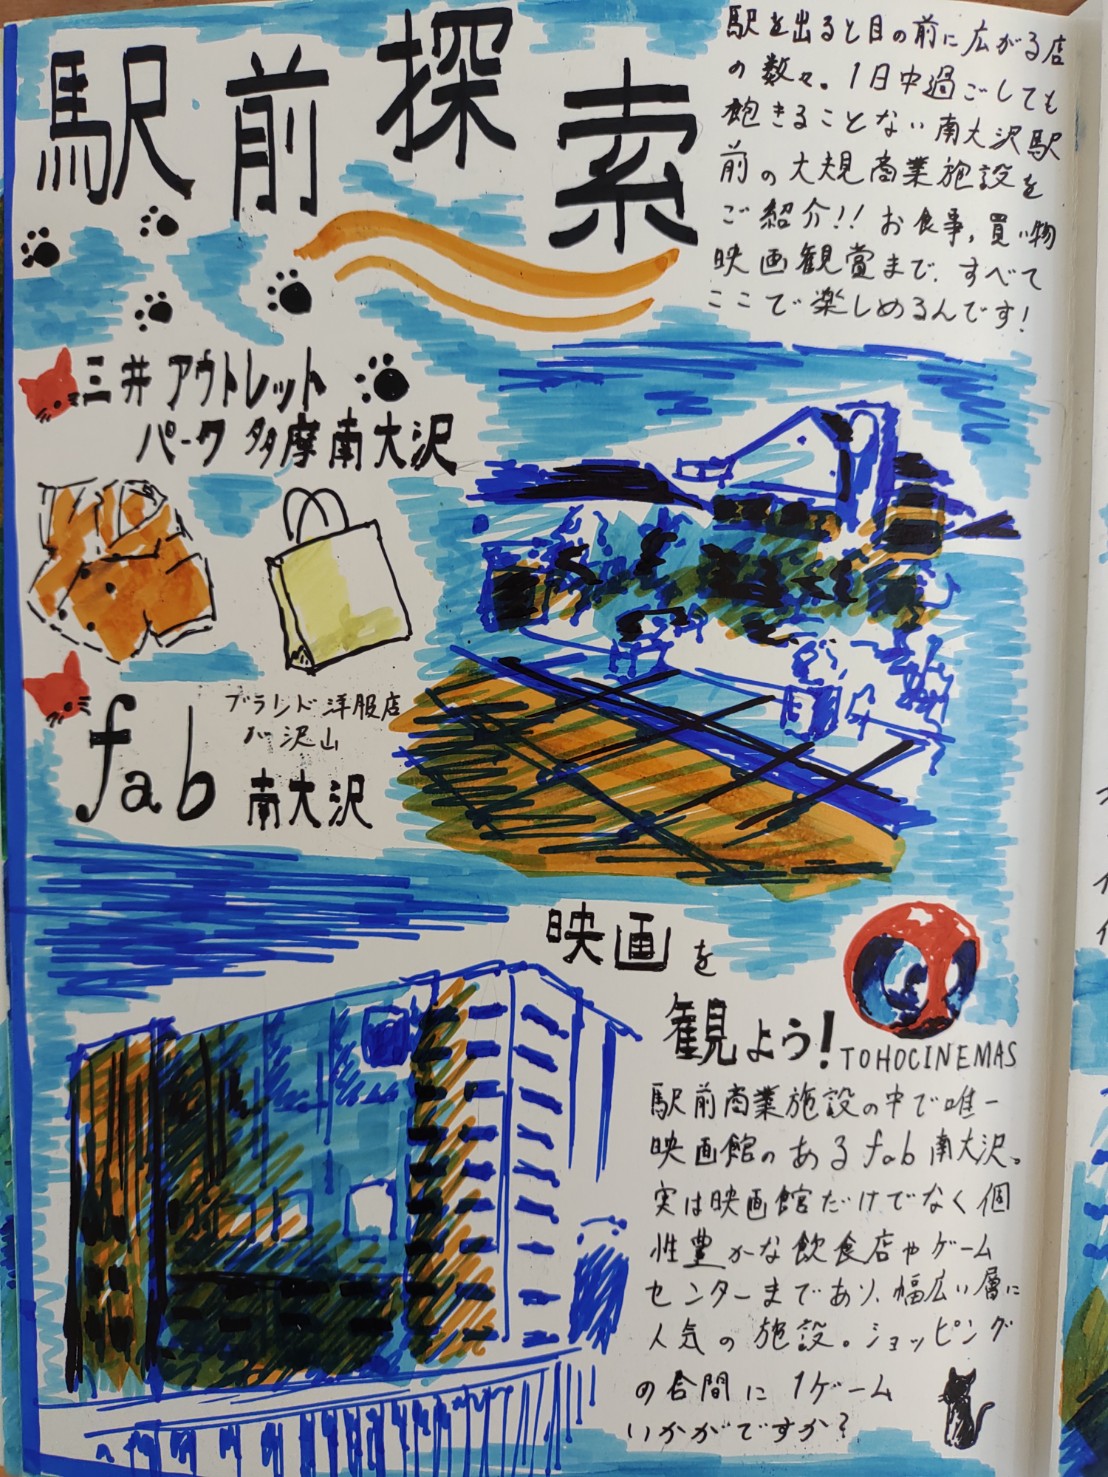 駅前探索
駅を出ると目の前に広がる店
の数々。1日中過ごしても
飽きることない南大沢駅
前の大規商業施設を
ご紹介!! お食事,買い物
映画観賞まで、すべて
ここで楽しめるんです!
三井アウトレット
パーク多摩南大沢
ブランド洋服店
が沢山
fab 南大沢
映画を
観よう!
TOHOCINEMAS
駅前商業施設の中で唯一
映画館のあるfab南大沢。
実は映画館だけでなく個
性豊かな飲食店やゲーム
センターまであり、幅広い層に
人気の施設。ショッピング
の合間に1ゲーム
いかがですか?